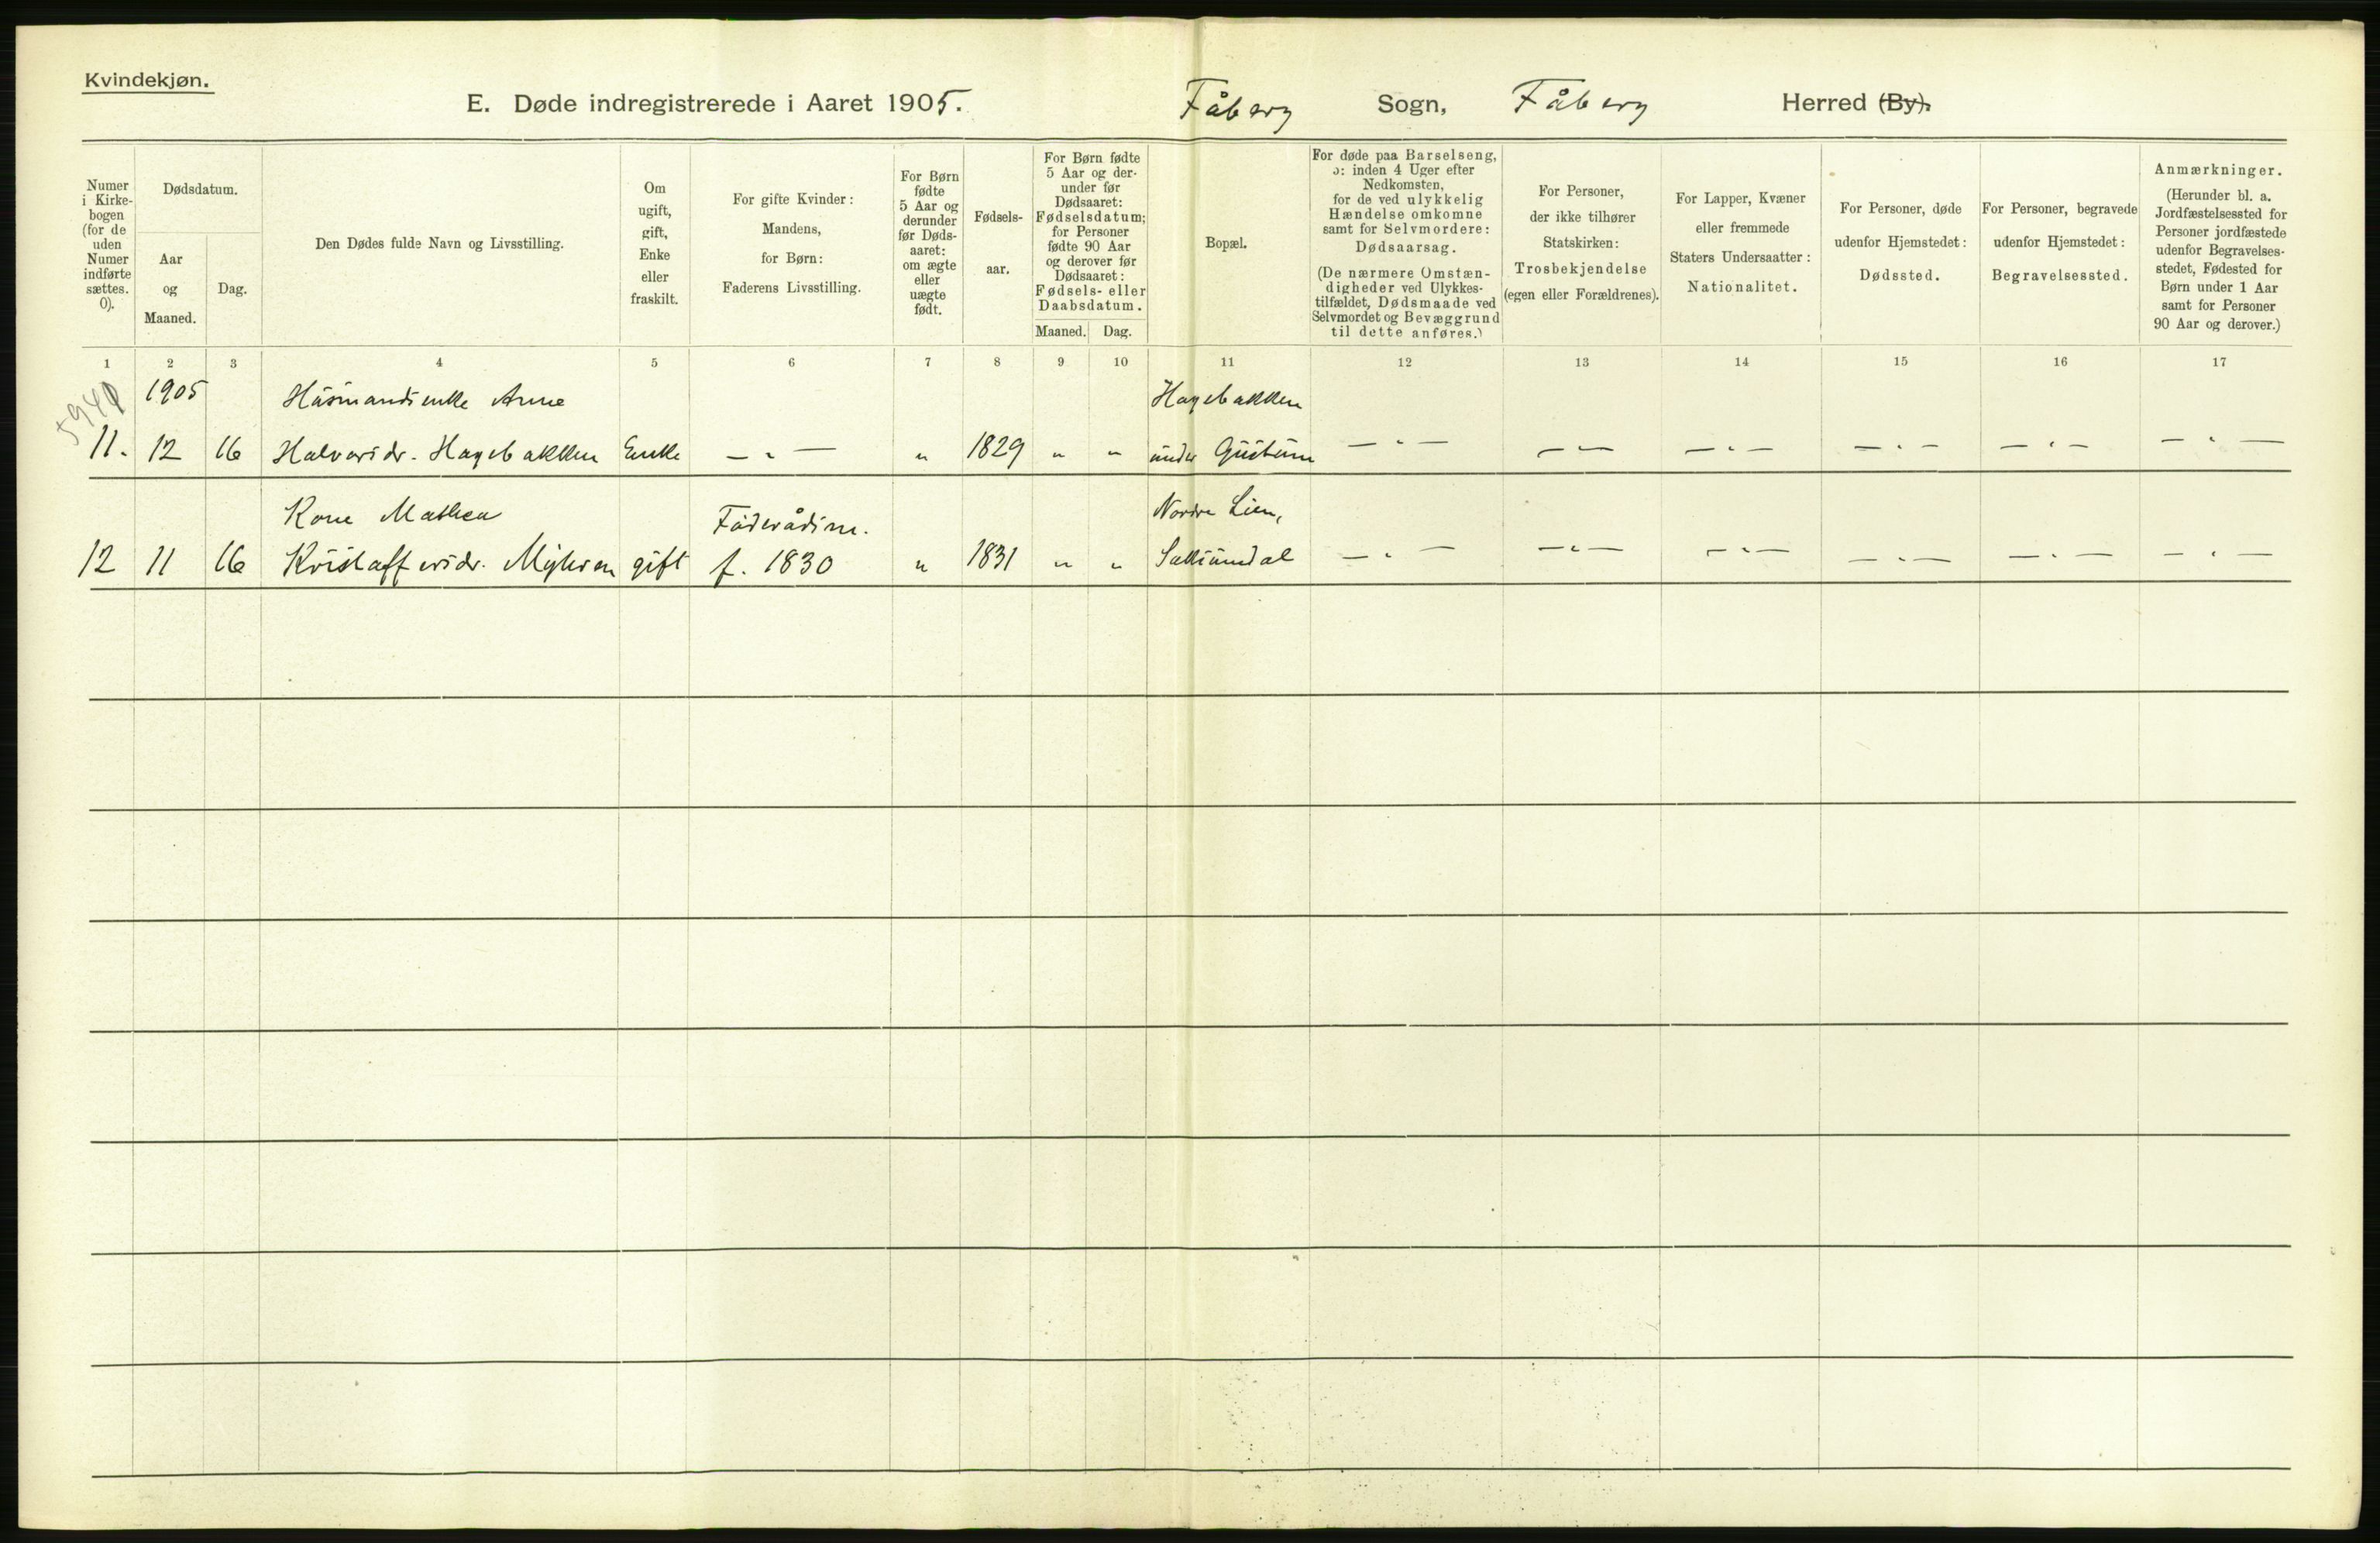 Kvindekjøn.
E. Døde indregistrerede i Aaret 1905. Fåberg Sogn, Fåberg Herred (By).
Numer
i Kirke-
bogen
(for de
uden
Numer
indførte
sættes.
0).
Dødsdatum.
Aar
og
Maaned.
Dag.
Den Dødes fulde Navn og Livsstilling.
Om
ugift,
gift,
Enke
eller
fraskilt.
For gifte Kvinder:
Mandens,
for Børn:
Faderens Livsstilling.
For Børn
fødte
5 Aar og
derunder
før Døds-
aaret:
om ægte
eller
uægte
født.
Fødsels-
aar.
For Børn fødte
5 Aar og der-
under før
Dødsaaret:
Fødselsdatum;
for Personer
fødte 90 Aar
og derover før
Dødsaaret:
Fødsels- eller
Daabsdatum.
Maaned. Dag.
Bopæl.
For døde paa Barselseng,
ɔ: inden 4 Uger efter
Nedkomsten,
for de ved ulykkelig
Hændelse omkomne
samt for Selvmordere:
Dødsaarsag.
(De nærmere Omstæn-
digheder ved Ulykkes-
tilfældet, Dødsmaade ved
Selvmordet og Bevæggrund
til dette anføres.)
For Personer,
der ikke tilhører
Statskirken:
Trosbekjendelse
(egen eller Forældrenes).
For Lapper, Kvæner
eller fremmede
Staters Undersaatter:
Nationalitet.
For Personer, døde
udenfor Hjemstedet:
Dødssted.
For Personer, begravede
udenfor Hjemstedet:
Begravelsessted.
Anmærkninger.
(Herunder bl. a.
Jordfæstelsessted for
Personer jordfæstede
udenfor Begravelses-
stedet, Fødested for
Børn under 1 Aar
samt for Personer
90 Aar og derover.)
1 2 3 4 5 6 7 8 9 10 11 12 13 14 15 16 17
1905 Husmandsenke Anne Hagebakken
11. 12 16 Halvorsdr. Hagebakken Enke — " — " 1829 " " under — " — — " — — " — — " — — " — — " —
Kone Mathea Føderådsm. Nordre Lien,
12 11 16 Kristoffersdr. Myhren gift f. 1830 " 1831 " " — " — — " — — " — — " — — " — — " —